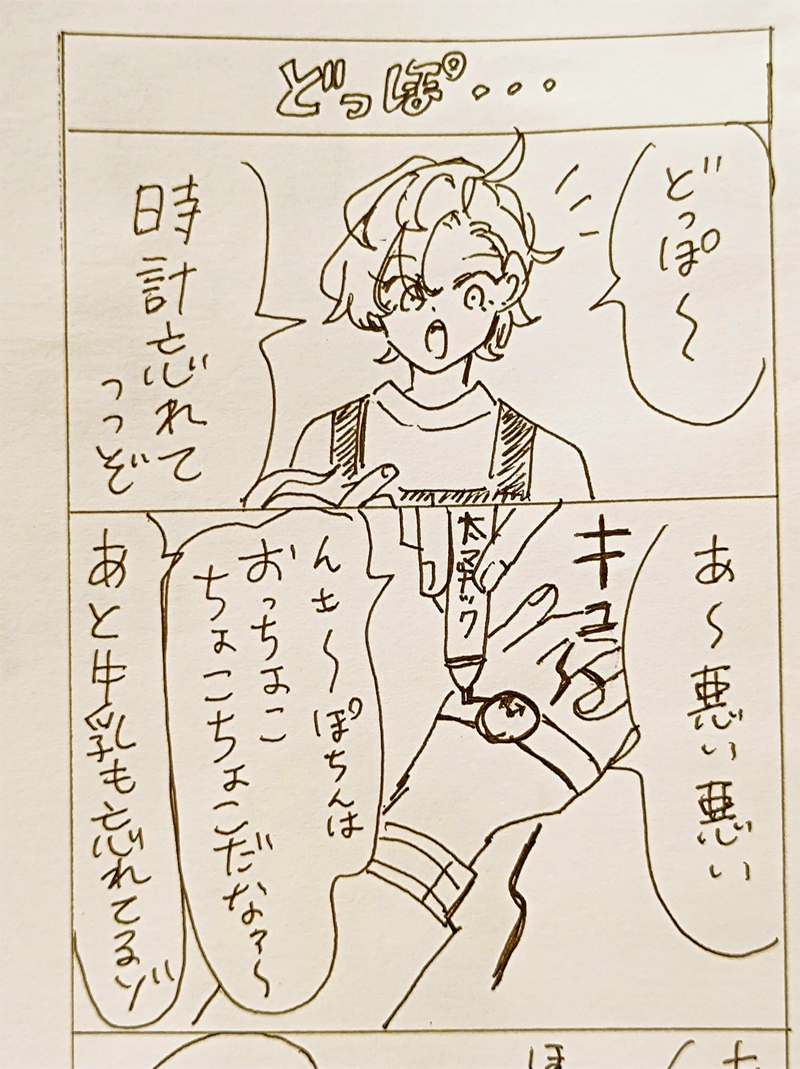 どっぽ...
どっぽ〜
時計忘れて
っっぞ
あ〜悪い悪い
キュッ
太マジック
んも〜ぽちんは
おっちょこ
ちょこちょこだなァ〜
あと牛乳も忘れてるゾ
ほ